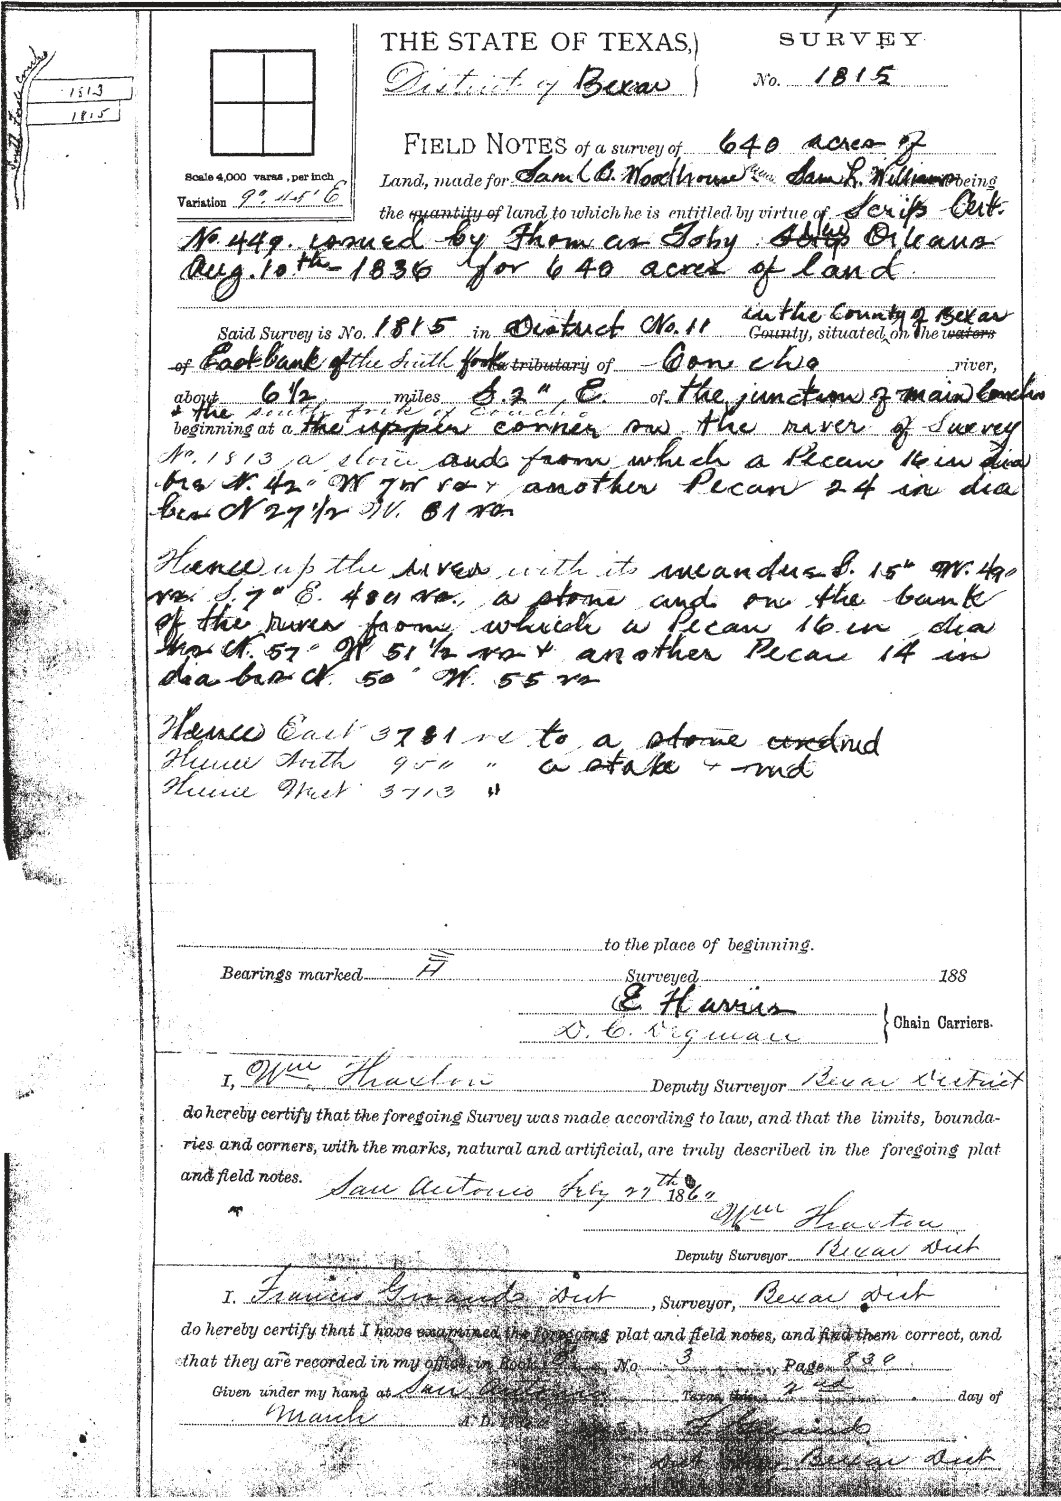 South Fork Concho
1813
1815
THE STATE OF TEXAS,
District of Bexar
SURVEY
No. 1815
Scale 4,000 varas, per inch
Variation 9° 45' E
FIELD NOTES of a survey of 640 acres of
Land, made for Saml B. Woodhouse Saml L. Williams being
the quantity of land to which he is entitled by virtue of Scrip Cert.
No. 449. issued by Thomas Toby Orleans
Aug. 10th 1836 for 640 acres of land
Said Survey is No. 1815 in District No. 11 in the County of Bexar County, situated on the waters
of East bank of the South fork tributary of Concho river,
about 6 1/2 miles S. 2° E. of the junction of main Concho
& the south fork of Concho
beginning at a the upper corner on the river of Survey
No. 1813 a stone and from which a Pecan 16 in dia
brs N. 42° W vrs & another Pecan 24 in dia
brs N 27 1/2 W. 81 vrs
Thence up the river with its meanders S. 15° W. 490
vrs. S. 7° E. 480 vrs., a stone and on the bank
of the river from which a Pecan 16 in dia
brs N. 57° W 51 1/2 vrs & another Pecan 14 in
dia brs N. 50° W. 55 vrs
Thence East 3781 vrs to a stone and md
Thence North 950 " a stake & md
Thence West 3713 "
to the place of beginning.
Bearings marked H Surveyed 188
E Harris
D. C. Chain Carriers.
I, Wm Thraxton Deputy Surveyor Bexar District
do hereby certify that the foregoing Survey was made according to law, and that the limits, bounda-
ries and corners, with the marks, natural and artificial, are truly described in the foregoing plat
and field notes.
San Antonio Feby 27th 1860
Wm Thraxton
Deputy Surveyor Bexar Dist
I. Francis Giraud Dist, Surveyor, Bexar Dist
do hereby certify that I have examined the foregoing plat and field notes, and find them correct, and
that they are recorded in my office, in Book No 3 Page 830
Given under my hand at San Antonio Texas, this 2nd day of
March A. D.
F Giraud
Dist Bexar Dist